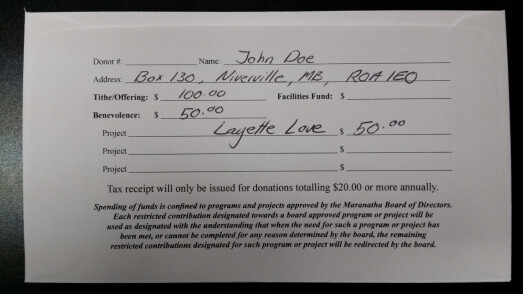 Donor #: Name: John Doe
Address: Box 130, Niverville, MB, R0A 1E0
Tithe/Offering: $ 100.00 Facilities Fund: $
Benevolence: $ 50.00
Project Layette Love $ 50.00
Project $
Project $
Tax receipt will only be issued for donations totalling $20.00 or more annually.
Spending of funds is confined to programs and projects approved by the Maranatha Board of Directors.
Each restricted contribution designated towards a board approved program or project will be
used as designated with the understanding that when the need for such a program or project has
been met, or cannot be completed for any reason determined by the board, the remaining
restricted contributions designated for such program or project will be redirected by the board.